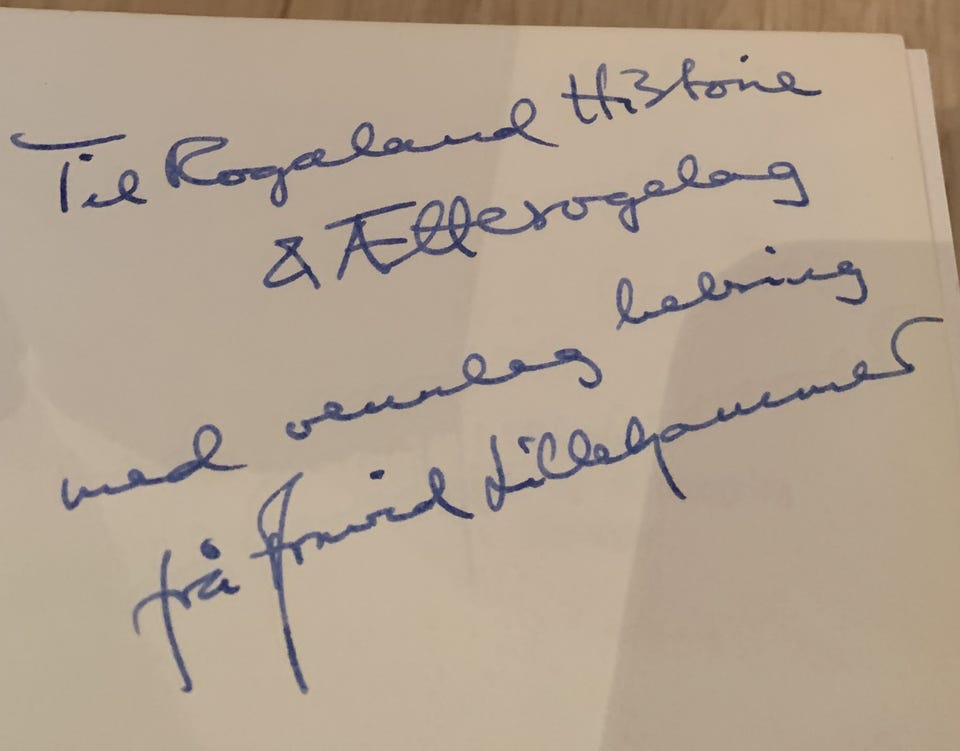 Til Rogaland Historie
& Ættesogelag
med vennleg helsing
frå Arnvid Lillehammer